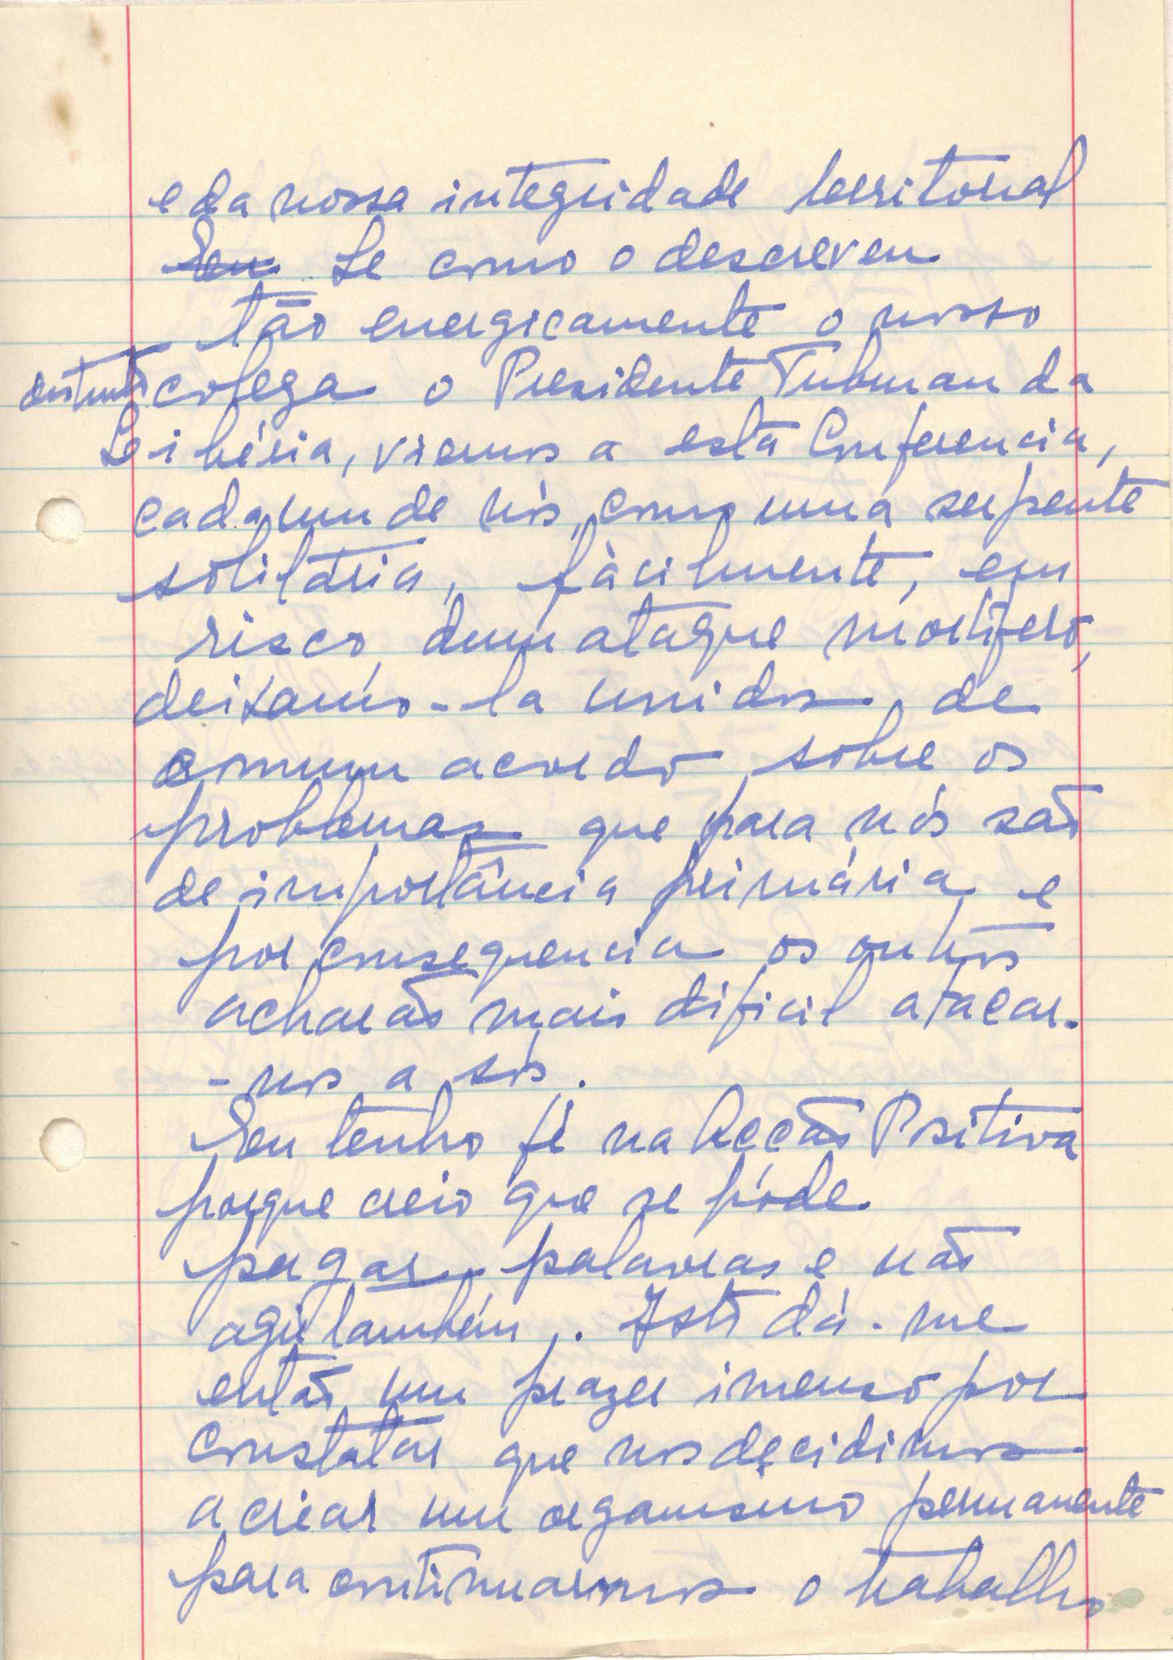 e da nossa integridade territorial
Eu Se como o descreveu
tão energicamente o nosso
colega o Presidente Tubman da
Libéria, viemos a esta Conferencia,
cada um de nós, como uma serpente
solitária, fàcilmente, em
risco dum ataque mortifero,
deixamo-la unidos, de
comum acordo sobre os
problemas que para nós são
de importância primária e
por consequencia os outros
acharão mais dificil atacar-
-nos a sós.
Eu tenho fé na Acção Positiva
porque creio que se póde
pegar palavras e não
agir também. Isto dá-me
então um prazer imenso por
constatar que nos decidimos
a criar um organismo permanente
para continuarmos o trabalho